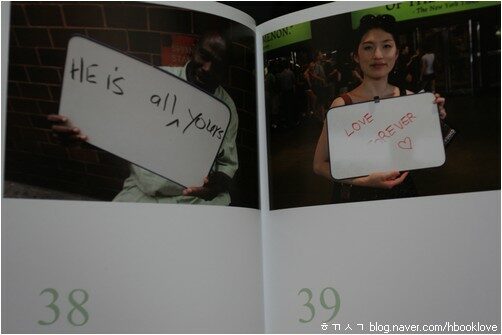 HE is all yours
ENON.
OF TH
- The New York Times
LOVE
FOREVER
♡
38
39
ㅎㄲㅅㄱ blog.naver.com/hbooklove